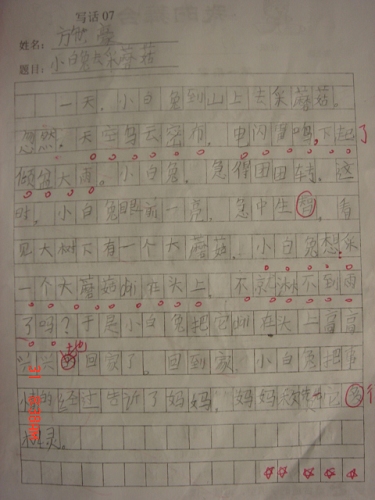 写话07
姓名：
题目：小白兔去采蘑菇
一天，小白兔到山上去采蘑菇。
忽然，天空乌云密布，电闪雷鸣，下起了
倾盆大雨。小白兔急得团团转。这
时，小白兔眼前一亮，急中生智，看
见大树下有一个大蘑菇。小白兔想：采
一个大蘑菇 在头上，不就淋不到雨
了吗？于是小白兔把它 在头上高高
兴兴地回家了。回到家，小白兔把事
的经过告诉了妈妈，妈妈